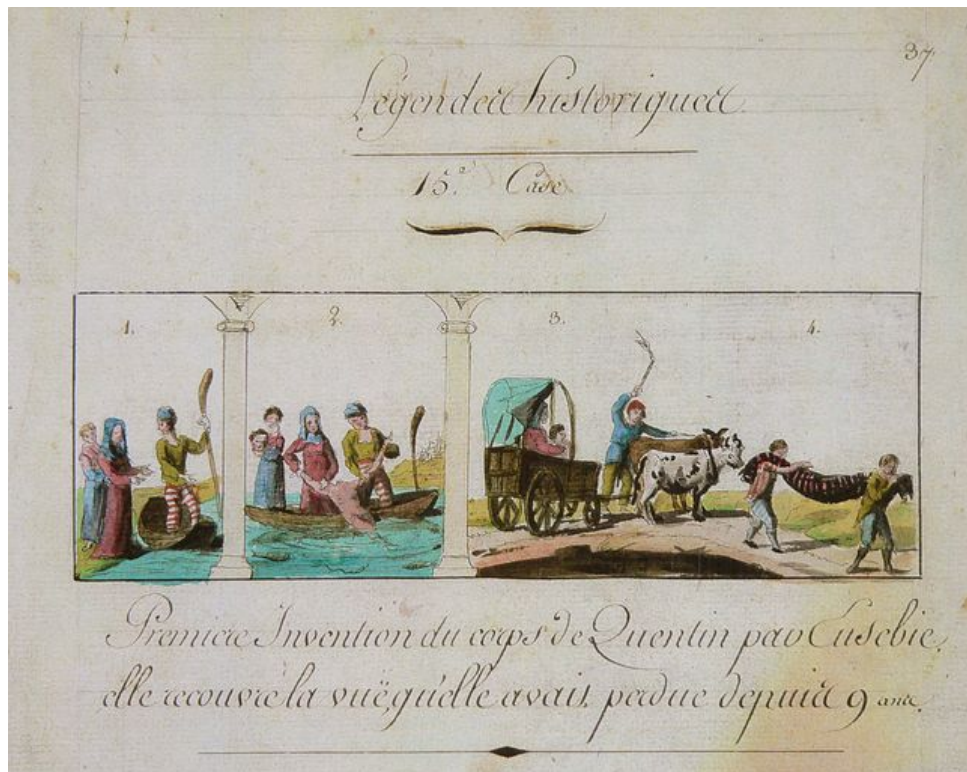 37
Légendes historiques.
15.e Case
1. 2. 3. 4.
Premiere Invention du corps de Quentin par Eusebie,
elle recouvre la vuë qu'elle avait perdue depuis 9 ans.